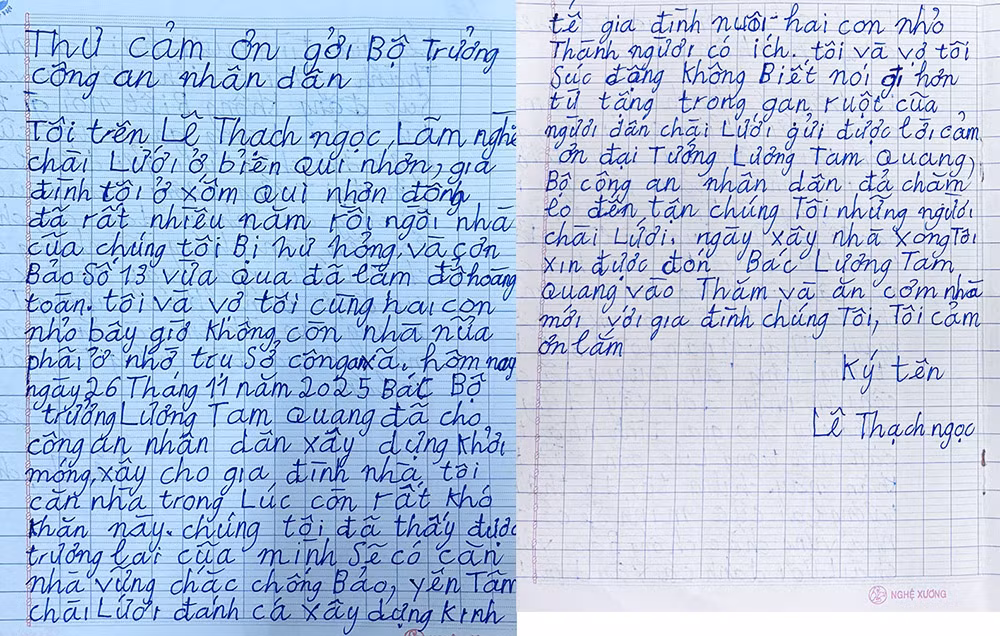 Thư cảm ơn gởi Bộ Trưởng
công an nhân dân
Tôi trên Lê Thạch ngọc, Làm nghề
chài Lưới ở biển Qui nhơn, gia
đình tôi ở xóm Qui nhơn đông
đã rất nhiều năm rồi ngôi nhà
của chúng tôi Bị hư hỏng, và cơn
Bảo Số 13 vừa qua đã làm đổ hoàng
toàn. tôi và vợ tôi cùng hai con
nhỏ bây giờ không còn nhà nửa
phải ở nhờ trụ Sở công an xã. hôm nay
ngày 26 Tháng 11 năm 2025 Bác Bộ
trưởng Lương Tam Quang đã cho
công an nhân dân xây dựng khởi
móng, xây cho gia đình nhà tôi
căn nhà trong Lúc còn rất khó
khăn này. chúng tôi đã thấy được
trương lai của mình Sẽ có căn
nhà vững chắc chống Bảo, yên Tâm
chài Lưới đánh cá xây dựng kinh
tế gia đình nuôi hai con nhỏ
Thành người có ích. tôi và vợ tôi
Súc động không Biết nói gì hơn
từ tặng trong gan ruột của
người dân chài Lưới gửi được lời cảm
ơn đại Tướng Lương Tam Quang,
Bộ công an nhân dân đả chăm
lo đến tận chúng Tôi những người
chài Lưới. ngày xây nhà xong Tôi
xin được đón Bác Lương Tam
Quang vào Thăm và ăn cơm nhà
mới với gia đình chúng Tôi, Tôi cảm
ơn lắm
Ký tên
Lê Thạch ngọc
NGHỆ XƯƠNG